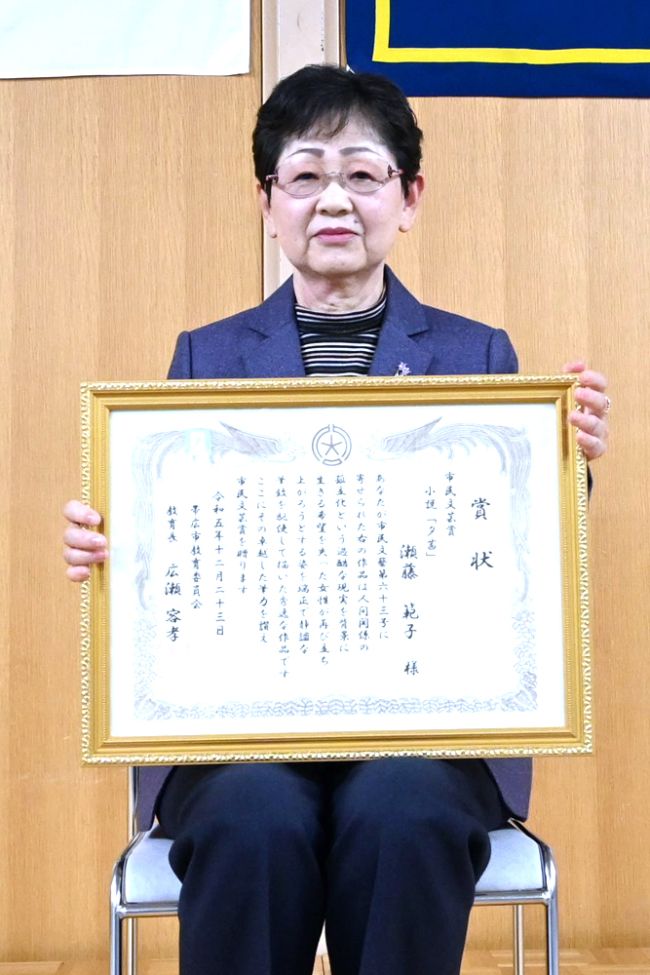 賞状
市民文芸賞
小説「夕茜」
瀬藤 範子 様
あなたが市民文藝第六十三号に
寄せられた右の作品は人間関係の
孤立化という過酷な現実を背景に
生きる希望を失った女性が再び立ち
上がろうとする姿を端正で静謐な
筆致を駆使して描いた秀逸な作品です
ここにその卓越した筆力を讃え
市民文芸賞を贈ります
令和五年十二月二十三日
帯広市教育委員会
教育長 広瀬 容孝